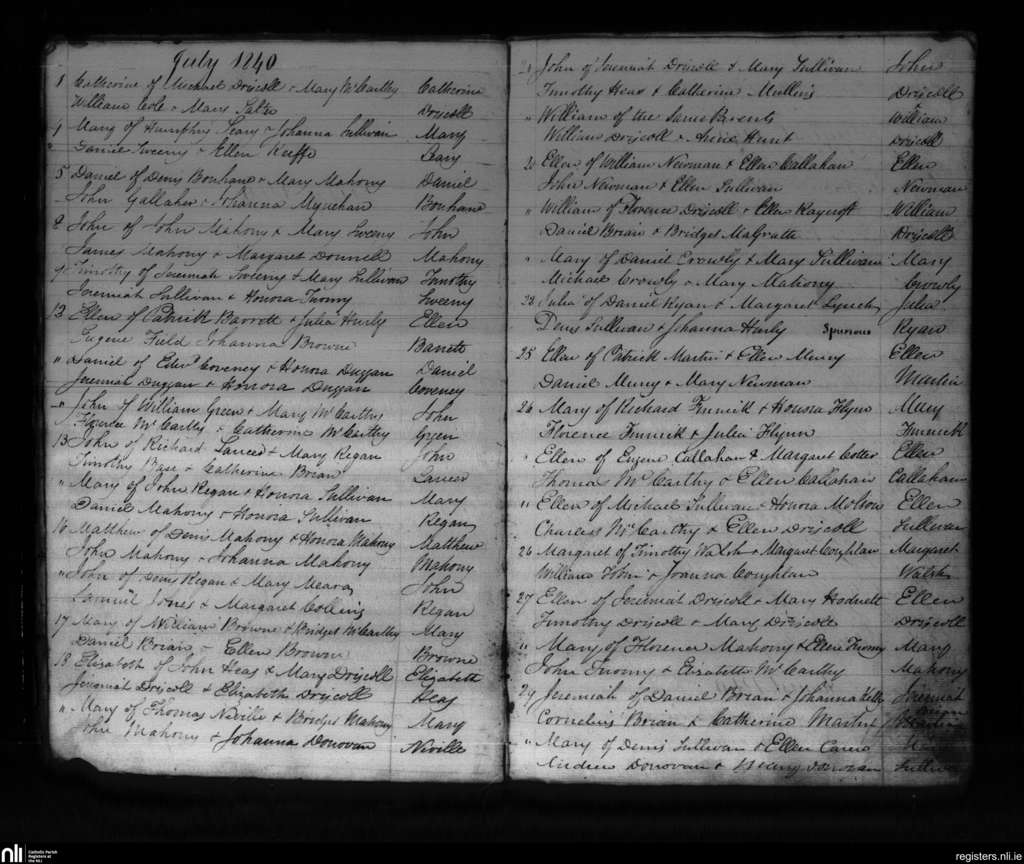 July 1840
1 Catherine of Michael Driscoll & Mary McCarthy Catherine
William Cole & Mary Driscoll
4 Mary of Humphry Leary & Johanna Sullivan Mary
" Daniel Sweeny & Ellen Keeffe Leary
5 Daniel of Denis Bonhane & Mary Mahony Daniel
John Gallaher & Johanna Bonhane
8 John of John Mahony & Mary Sweeny John
James Mahony & Margaret Donnell Mahony
9 Timothy of Jeremiah Sweeny & Mary Sullivan Timothy
Jeremiah Sullivan & Honora Twomy Sweeny
12 Ellen of Patrick Barrett & Julia Hurly Ellen
Eugene Field Johanna Browne Barrett
" Daniel of Edwd Coveney & Honora Duggan Daniel
Jeremiah Duggan & Honora Duggan Coveney
" John of William Green & Mary McCarthy John
Florence McCarthy & Catherine McCarthy Green
13 John of Richard & Mary Regan John
Timothy & Catherine Brian
" Mary of John Regan & Honora Sullivan Mary
Daniel Mahony & Honora Sullivan Regan
Matthew of Denis Mahony & Honora Mahony Matthew
John Mahony & Johanna Mahony Mahony
" John of Denis Regan & Mary Meara John
Samuel Jones & Margaret Collins Regan
17 Mary of William Browne & Bridget McCarthy Mary
Daniel Brian & Ellen Browne Browne
18 Elizabeth of John Heas & Mary Driscoll Elizabeth
Jeremiah Driscoll & Elizabeth Driscoll Heas
" Mary of Thomas Neville & Bridget Mahony Mary
John Mahony & Johanna Donovan Neville
John of Jeremiah Driscoll & Mary Sullivan John
Timothy Heas & Catherine Mullins Driscoll
" William of the Same Parents William
William Driscoll & Hunt Driscoll
20 Ellen of William Newman & Ellen Callahan Ellen
John Newman & Ellen Sullivan Newman
" William of Florence Driscoll & Ellen Raycroft William
Daniel Brian & Bridget McGrath Driscoll
" Mary of Daniel Crowly & Mary Sullivan Mary
Michael Crowly & Mary Mahony Crowly
23 Julia of Daniel Ryan & Margaret Lynch Julia
Denis Sullivan & Johanna Hurly Spurious Ryan
25 Ellen of Patrick Martin & Ellen Ellen
Daniel & Mary Newman Martin
26 Mary of Richard & Honora Flynn Mary
Florence & Julia Flynn
" Ellen of Eugene Callahan & Margaret Cotter Ellen
Thomas McCarthy & Ellen Callahan Callahan
" Ellen of Michael Sullivan & Honora Ellen
Charles McCarthy & Ellen Driscoll Sullivan
26 Margaret of Timothy Walsh & Margaret Coughlan Margaret
William & Joanna Coughlan Walsh
27 Ellen of Jeremiah Driscoll & Mary Hodnett Ellen
Timothy Driscoll & Mary Driscoll Driscoll
" Mary of Florence Mahony & Ellen Twomy Mary
John Twomy & Elizabeth McCarthy Mahony
29 Jeremiah of Daniel Brian & Johanna Kelly Jeremiah
Cornelius Brian & Catherine Martin Brian
" Mary of Denis Sullivan & Ellen
Andrew Donovan & Mary Donovan Sullivan
nli Catholic Parish
Registers at
the NLI
registers.nli.ie